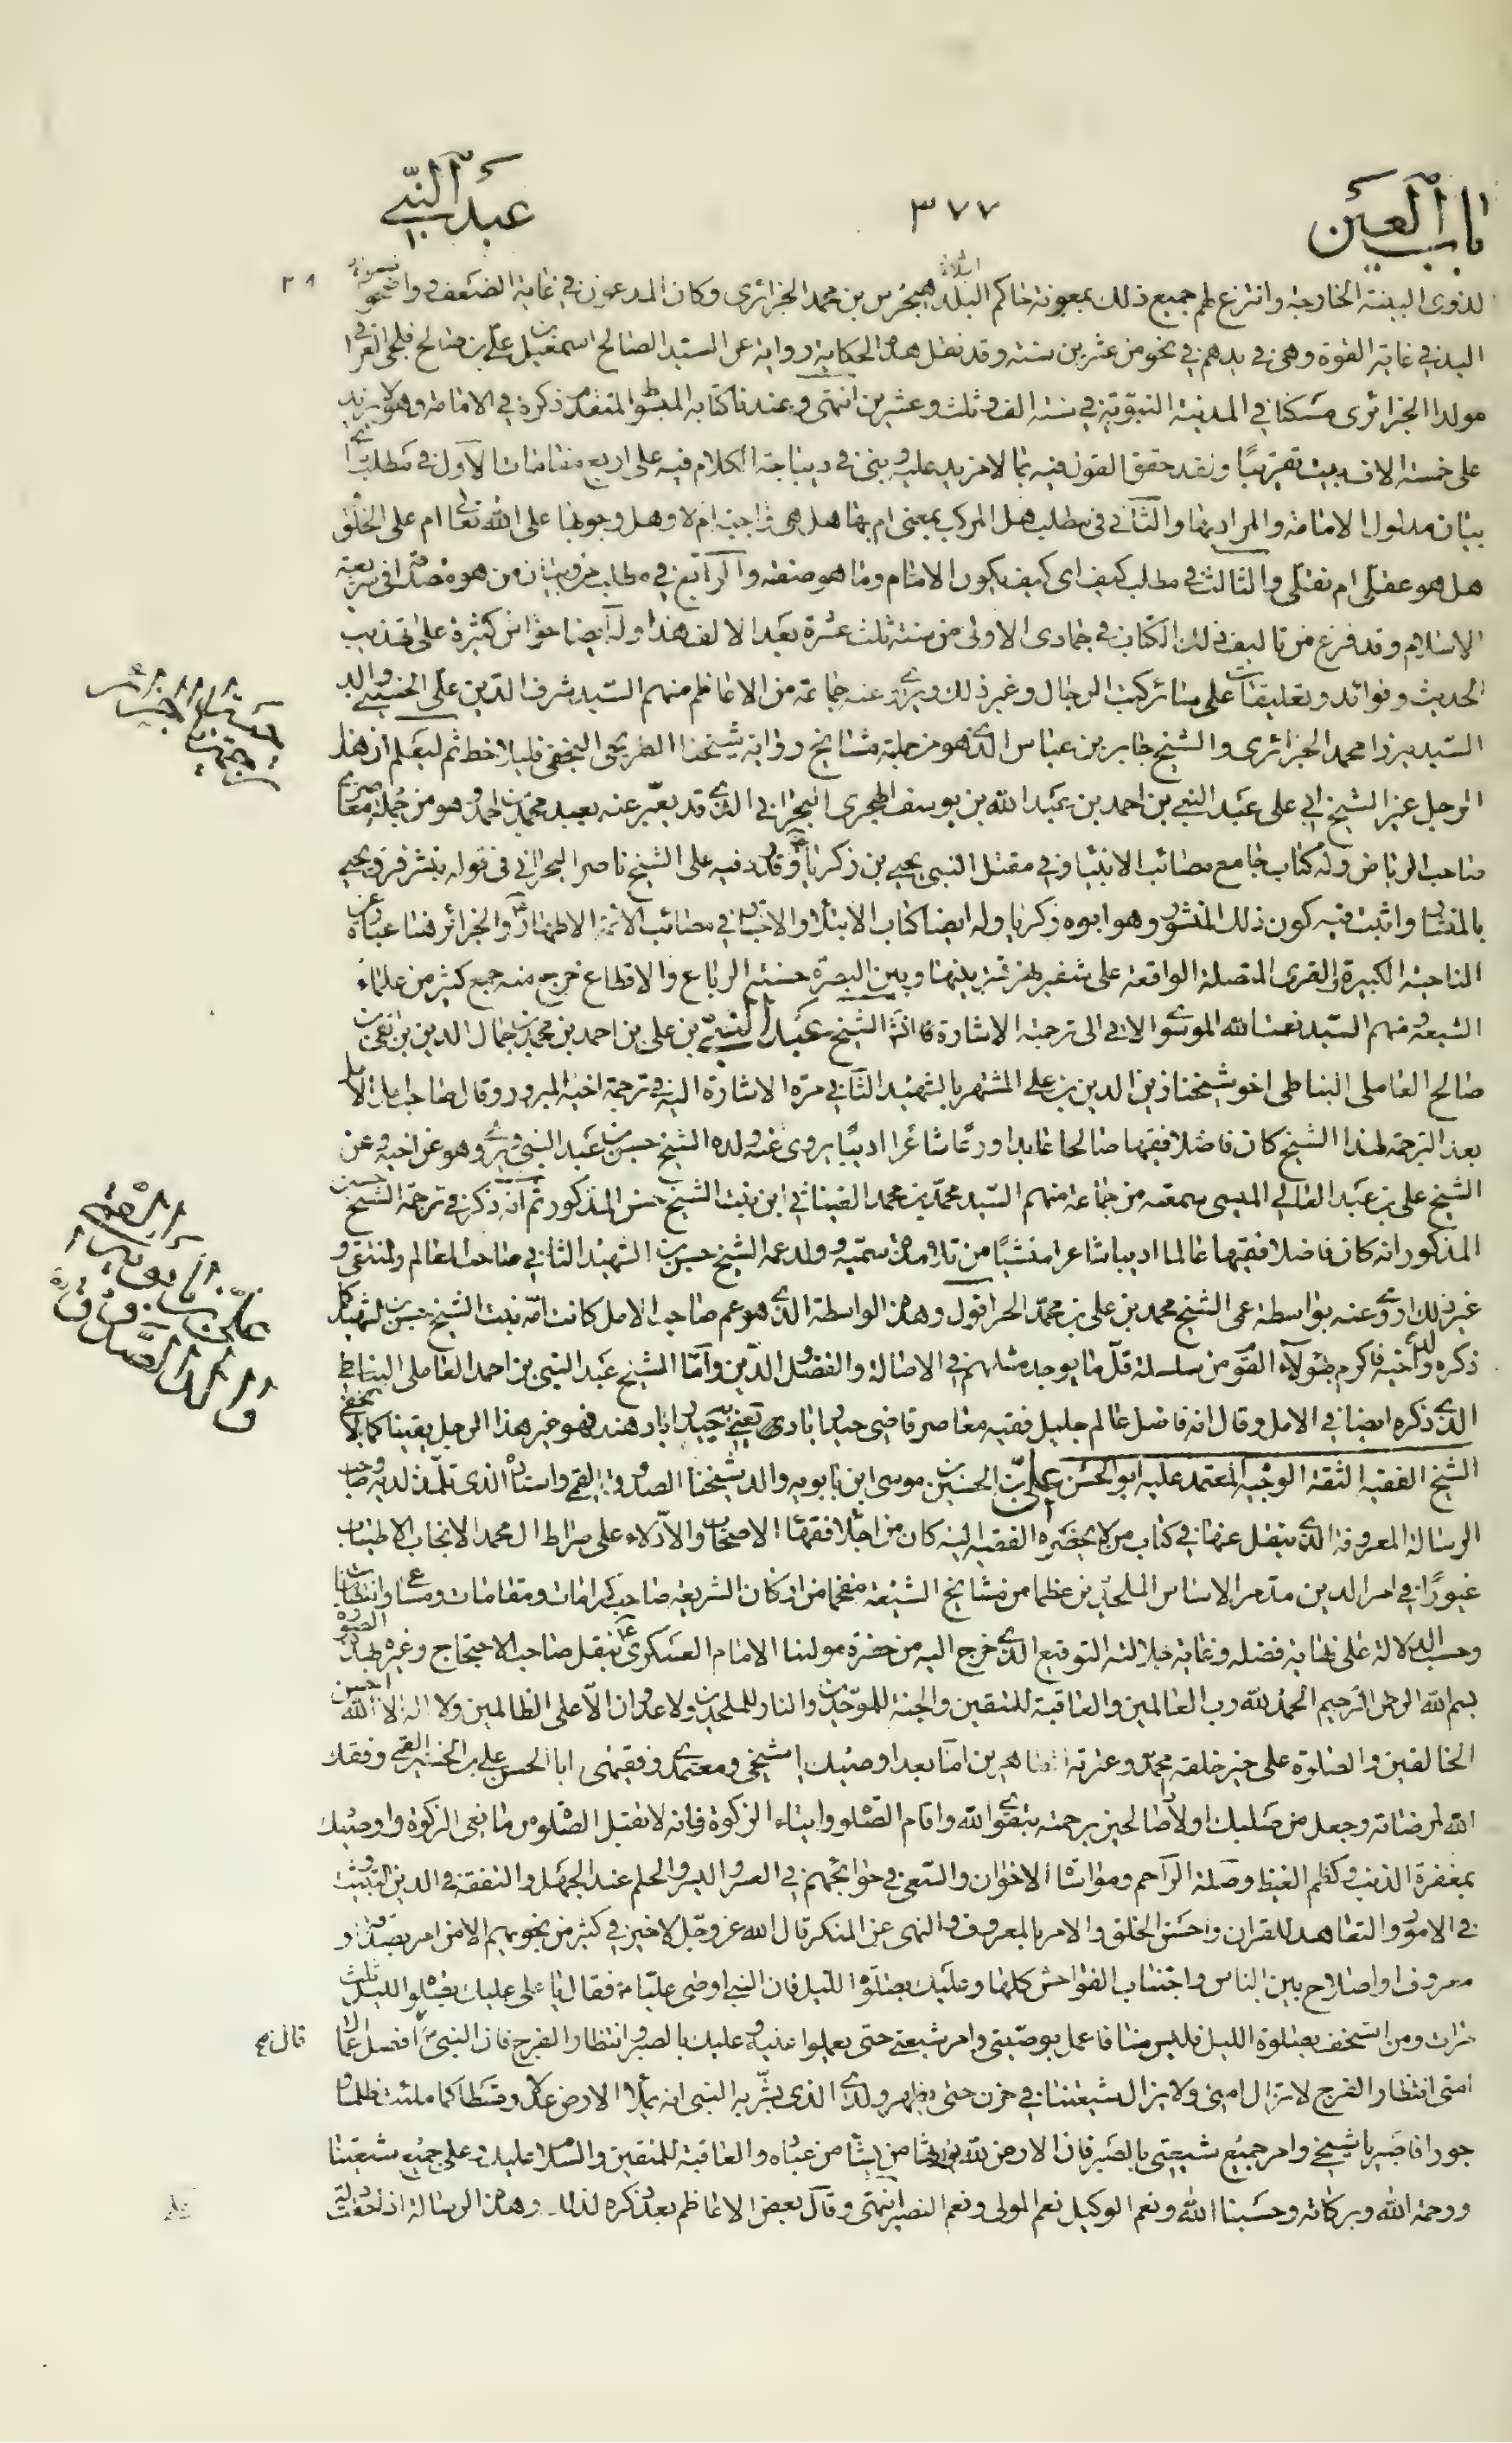 باب العين
٣٧٧
عبد النبي
لذوى البينة الخارجة وانتزع لهم جميع ذلك بمعونة حاكم البلد محمد الجزائرى وكان المدعون فى غاية الضعف و
اليد فى غاية القوة وهى فى يدهم فى نحو من عشرين سنة وقد نقل هذه الحكاية رواية عن السيد الصالح اسمعيل بن على بن صالح
مولدا الجزائرى مسكنا فى المدينة النبوية فى سنة الف وثلث وعشرين انتهى وعندنا كتابه المبسوط المتقدم ذكره فى الامامة وهو لا يزيد
على خمسة الاف بيت تقريبًا ولقد حقق القول فيه بما لا مزيد عليه وبنى فى ديباجة الكلام فيه على اربع مقامات الاول فى مطلب
بيان مدلول الامامة والمراد بها والثانى فى مطلب هل المركب بمعنى ام بها هل هى واجبة ام لا وهل وجوبها على الله تعالى ام على الخلق
هل هو عقلى ام نقلى والثالث فى مطلب كيف اى كيف يكون الامام وما هو صفته والرابع فى مطلب من وبيان من هو فى شريعة
الاسلام وقد فرغ من تاليف ذلك الكتاب فى جمادى الاولى من سنة ثلث عشرة بعد الالف هذا وله ايضا حواش كثيرة على تهذيب
الحديث وفوائد وتعليقات على سائر كتب الرجال وغير ذلك ويروى عنه جماعة من الاعاظم منهم السيد شرف الدين على الحسينى والد
السيد ميرزا محمد الجزائرى والشيخ جابر بن عباس الذى هو من جملة مشايخ رواية شيخنا الطريحى النجفى فليلاحظ ثم ليعلم ان هذا
الرجل غير الشيخ ابى على عبد النبى بن احمد بن عبد الله بن يوسف الهجرى البحرانى الذى قد يعبر عنه بعبد محمد بن احمد وهو من جملة معاصرى
صاحب الرياض وله كتاب جامع مصائب الانبياء وفى مقتل النبى يحيى بن زكريا وقد رد فيه على الشيخ ناصر البحرانى فى قوله بنشر فرق يحيى
بالمنشار واثبت فيه كون ذلك المنشور هو ابوه زكريا وله ايضا كتاب الابتلاء والاختبار فى مصائب الائمة الاطهار والجزائر هنا عبارة عن
الناحية الكبيرة والقرى المتصلة الواقعة على شفير نهر بينها وبين البصرة حسنة الرباع والاقطاع خرج منه جمع كثير من علماء
الشيعة منهم السيد نعمة الله الموسوى الاتى الى ترجمته الاشارة الشيخ عبد النبى بن على بن احمد بن محمد بن جمال الدين بن تقى بن
صالح العاملى النباطى اخو شيخنا زين الدين بن على المشتهر بالشهيد الثانى مرة الاشارة اليه فى ترجمة اخيه المبرور وقال صاحب امل الامل
بعد الترجمة لهذا الشيخ كان فاضلا فقيها صالحا عابدا ورعًا شاعرا اديبًا يروى عنه ولده الشيخ حسن بن عبد النبى ويروى هو عن اخيه وعن
الشيخ على بن عبد العالى الميسى سمعته من جماعة منهم السيد محمد بن محمد العينائى ابن بنت الشيخ حسن المذكور ثم انه ذكر فى ترجمة الشيخ حسن
المذكور انه كان فاضلا فقيها عالما اديبا شاعرا منشيًا من تلامذة سميه وولد عمه الشيخ حسن بن الشهيد الثانى صاحب المعالم والمنتقى و
غير ذلك اروى عنه بواسطة عمى الشيخ محمد بن على بن محمد الحر اقول وهذه الواسطة الذى هو عم صاحب الامل كانت امه بنت الشيخ حسن بن الشهيد كما
ذكره ولد اخيه فاكرم بهؤلاء القوم من سلسلة قل ما يوجد مثلهم فى الاصالة والفضل والدين واما الشيخ عبد النبى بن احمد العاملى النباطى
الذى ذكره ايضا فى الامل وقال انه فاضل عالم جليل فقيه معاصر قاضى حيدراباد يعنى حيدراباد هند فهو غير هذا الرجل يقينا كما لا يخفى
الشيخ الفقيه الثقة الوجيه المعتمد عليه ابو الحسن على بن الحسين بن موسى ابن بابويه والد شيخنا الصدوق القمى واستاده الذى تلمذ لديه صاحب
الرسالة المعروفة الذى ينقل عنها فى كتاب من لا يحضره الفقيه كان من اجلاء فقهاء الاصحاب والادلاء على صراط ال محمد الانجاب الاطياب
غيورًا فى امر الدين مدمر الاساس الملحدين عظما من مشايخ الشيعة مفخما من اركان الشريعة صاحب كرامات ومقامات ومساعى وانتظامات
وحسب الدلالة على نهاية فضله وغاية جلالته التوقيع الذى خرج اليه من حضرة مولينا الامام العسكرى بنقل صاحب الاحتجاج وغيره بهذه الصورة
بسم الله الرحمن الرحيم الحمد لله رب العالمين والعاقبة للمتقين والجنة للموحدين والنار للملحدين ولا عدوان الا على الظالمين ولا اله الا الله احسن
الخالقين والصلوة على خير خلقه محمد وعترته الطاهرين اما بعد اوصيك يا شيخى ومعتمدى وفقيهى ابا الحسن على بن الحسين القمى وفقك
الله لمرضاته وجعل من صلبك اولادا صالحين برحمته بتقوى الله واقام الصلوة وايتاء الزكوة فانه لا تقبل الصلوة من مانعى الزكوة واوصيك
بمغفرة الذنب وكظم الغيظ وصلة الرحم ومواساة الاخوان والسعى فى حوائجهم فى العسر واليسر والحلم عند الجهل والتفقه فى الدين والتثبت
فى الامور والتعاهد للقران وحسن الخلق والامر بالمعروف والنهى عن المنكر قال الله عز وجل لا خير فى كثير من نجويهم الا من امر بصدقة او
معروف او اصلاح بين الناس واجتناب الفواحش كلها وعليك بصلوة الليل فان النبى اوصى عليا فقال يا على عليك بصلوة الليل ثلث
مرات ومن استخف بصلوة الليل فليس منا فاعمل بوصيتى وامر شيعتى حتى يعملوا عليه وعليك بالصبر وانتظار الفرج فان النبى قال افضل اعمال
امتى انتظار الفرج لا تزال امتى ولا يزال شيعتنا فى حزن حتى يظهر ولدى الذى بشر به النبى انه يملأ الارض عدلا وقسطا كما ملئت ظلما و
جورا فاصبر يا شيخى وامر جميع شيعتى بالصبر فان الارض لله يورثها من يشاء من عباده والعاقبة للمتقين والسلام عليك وعلى جميع شيعتنا
ورحمة الله وبركاته وحسبنا الله ونعم الوكيل نعم المولى ونعم النصير انتهى وقال بعض الاعاظم بعد ذكره لذلك وهذه الرسالة
على بن بابويه القمى
والد الصدوق